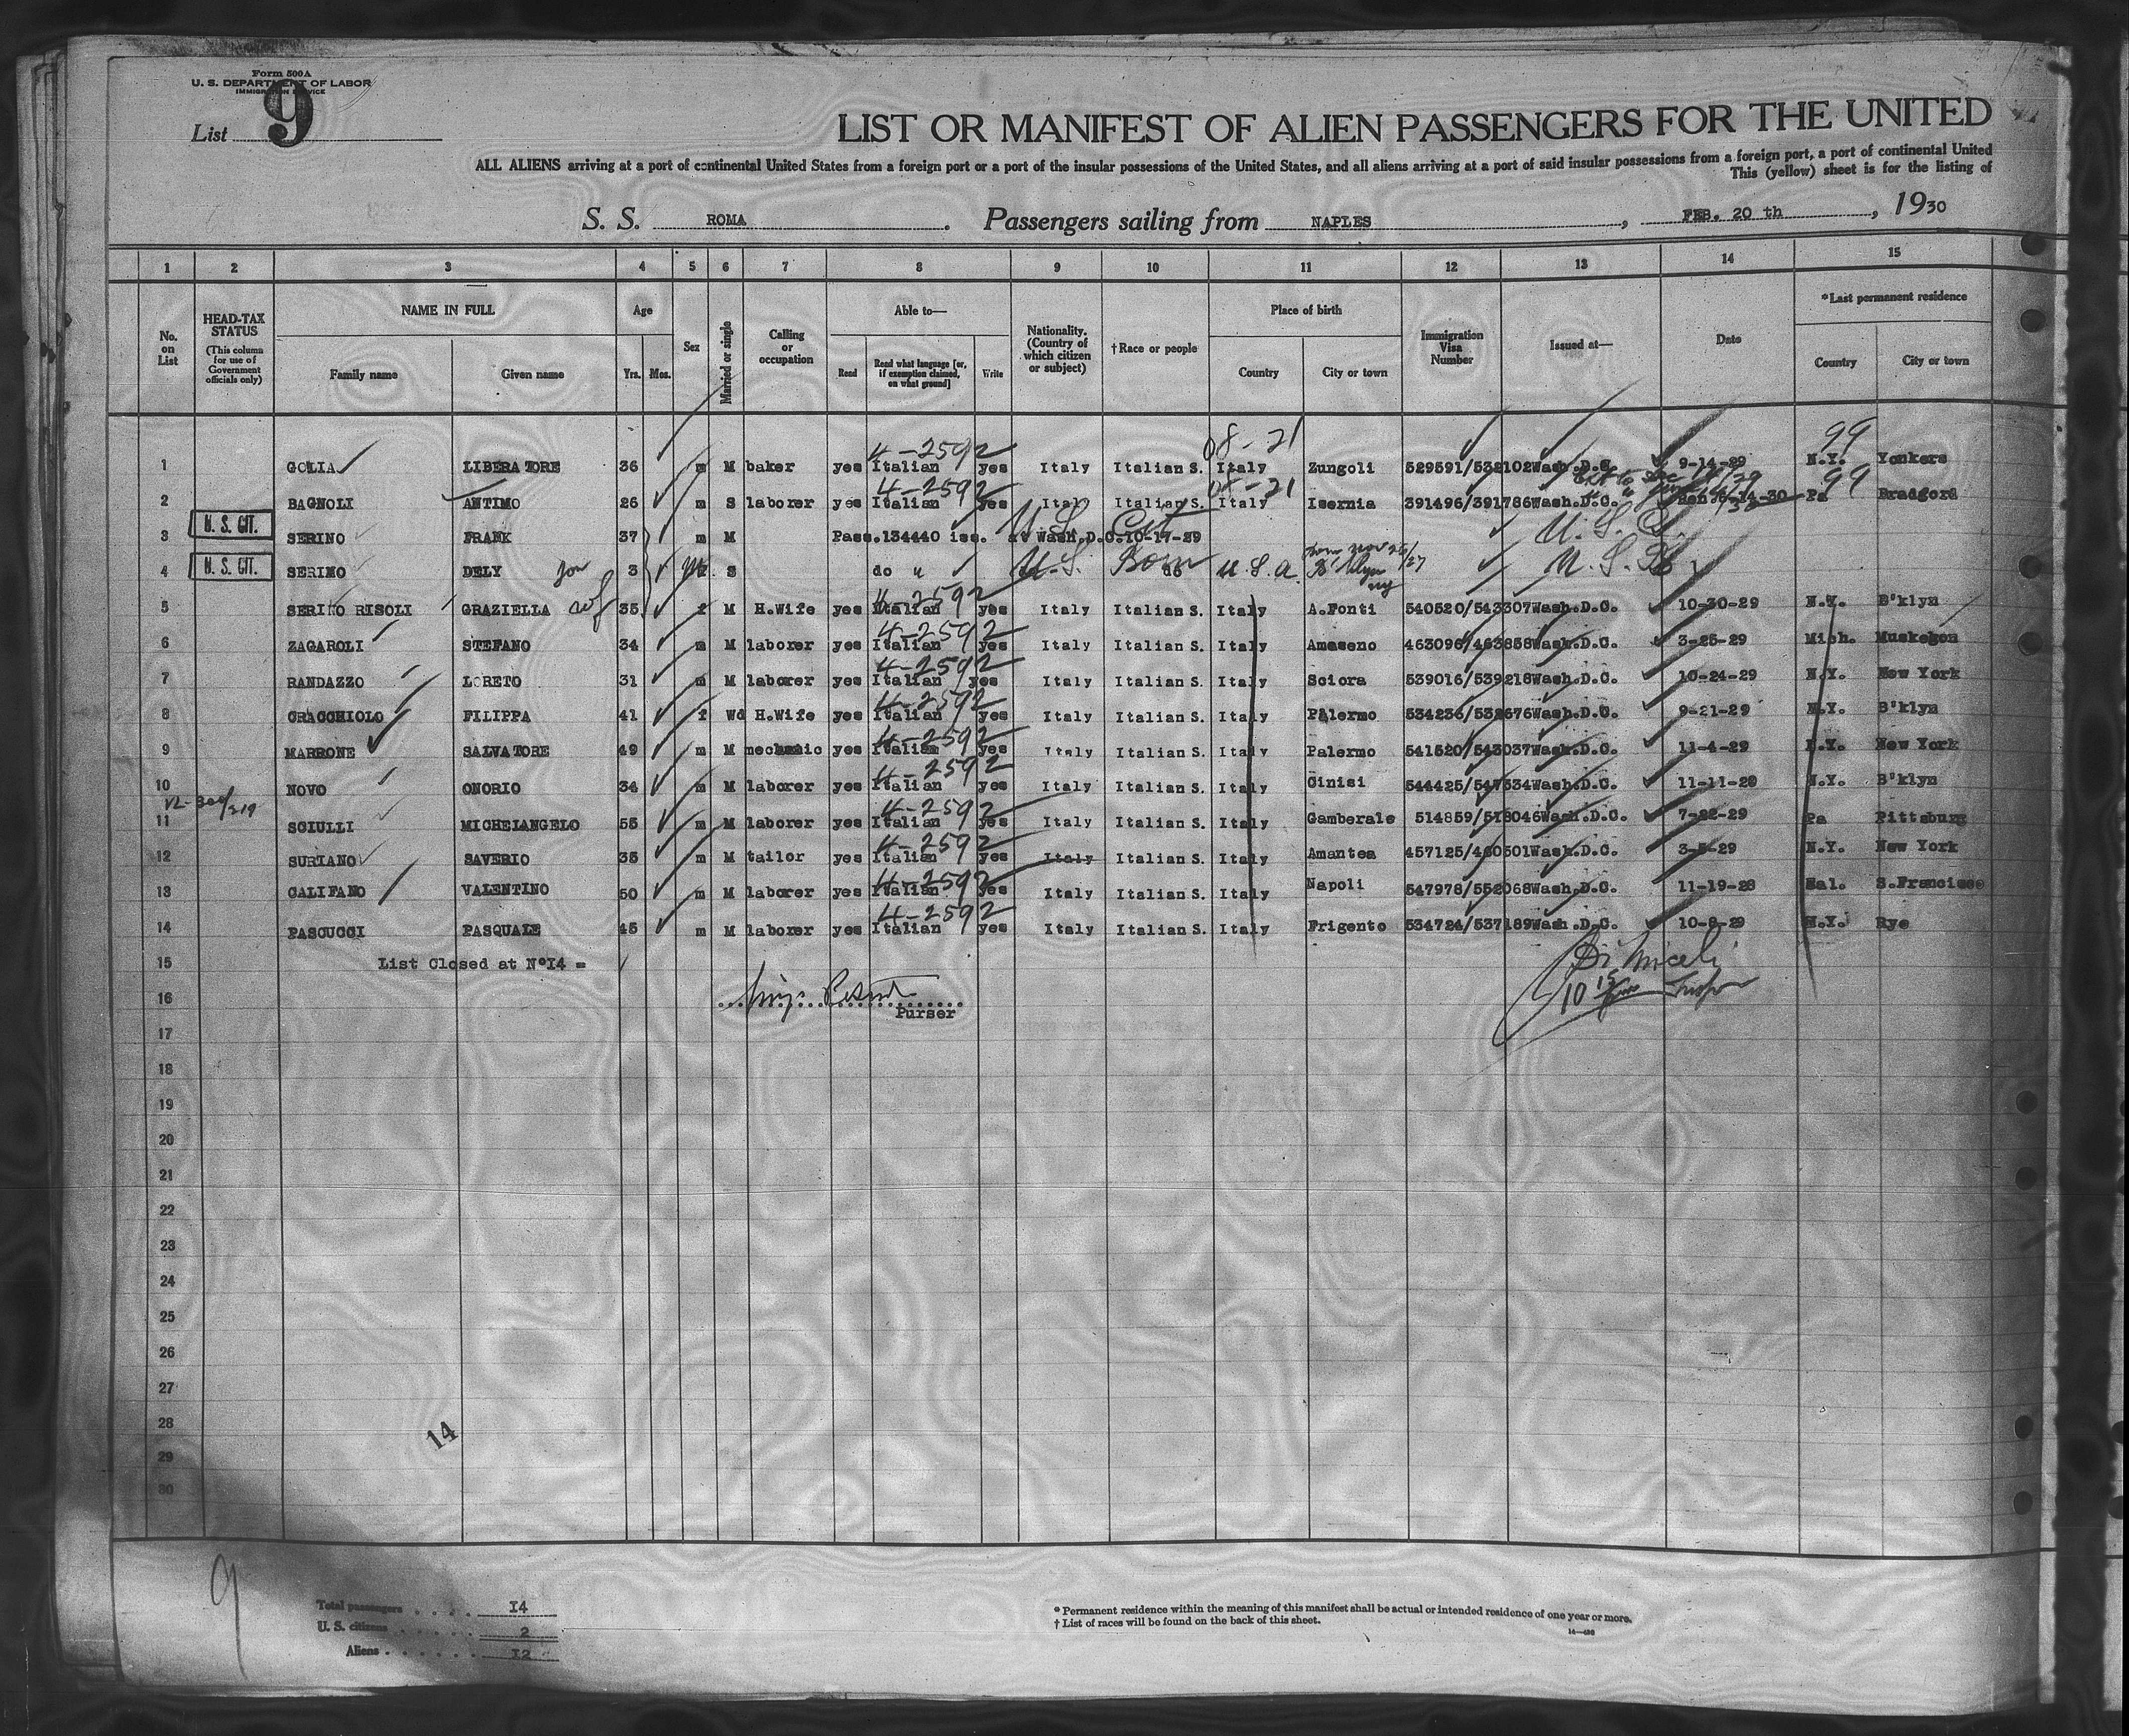 Form 500A
U. S. DEPARTMENT OF LABOR
IMMIGRATION SERVICE
List 9
LIST OR MANIFEST OF ALIEN PASSENGERS FOR THE UNITED
ALL ALIENS arriving at a port of continental United States from a foreign port or a port of the insular possessions of the United States, and all aliens arriving at a port of said insular possessions from a foreign port, a port of continental United
This (yellow) sheet is for the listing of
S. S. ROMA . Passengers sailing from NAPLES , FEB. 20 th , 1930
1 2 3 4 5 6 7 8 9 10 11 12 13 14 15
No. on List
HEAD-TAX STATUS (This column for use of Government officials only)
NAME IN FULL
Family name Given name
Age
Yrs. Mos.
Sex
Married or single
Calling or occupation
Able to—
Read Read what language [or, if exemption claimed, on what ground] Write
Nationality. (Country of which citizen or subject)
†Race or people
Place of birth
Country City or town
Immigration Visa Number
Issued at—
Date
*Last permanent residence
Country City or town
4-2592 08-21 99
1 GOLIA LIBERATORE 36 m M baker yes Italian yes Italy Italian S. Italy Zungoli 529591/532102 Wash.D.C. 9-14-29 N.Y. Yonkers
4-2592 08-21 99
2 BAGNOLI ANTIMO 26 m S laborer yes Italian yes Italy Italian S. Italy Isernia 391496/391786 Wash.D.C. Pa Bradford
U. S. CIT. U.S. Cit U.S.C.
3 SERINO FRANK 37 m M Pass.134440 iss. at Wash.D.C.10-17-29
U. S. CIT.
4 SERINO DELY son 3 m S do " U.S. Born do U.S.A. B'klyn ny
4-2592
5 SERINO RISOLI GRAZIELLA wf 35 f M H.Wife yes Italian yes Italy Italian S. Italy A.Fonti 540520/543307 Wash.D.C. 10-30-29 N.Y. B'klyn
4-2592
6 ZAGAROLI STEFANO 34 m M laborer yes Italian yes Italy Italian S. Italy Amaseno 463096/463858 Wash.D.C. 3-25-29 Mich. Muskegon
4-2592
7 RANDAZZO LORETO 31 m M laborer yes Italian yes Italy Italian S. Italy Sciora 539016/539218 Wash.D.C. 10-24-29 N.Y. New York
4-2592
8 CRACCHIOLO FILIPPA 41 f Wd H.Wife yes Italian yes Italy Italian S. Italy Palermo 534236/532676 Wash.D.C. 9-21-29 N.Y. B'klyn
4-2592
9 MARRONE SALVATORE 49 m M mechanic yes Italian yes Italy Italian S. Italy Palermo 541520/543037 Wash.D.C. 11-4-29 N.Y. New York
4-2592
10 NOVO ONORIO 34 m M laborer yes Italian yes Italy Italian S. Italy Cinisi 544425/547534 Wash.D.C. 11-11-29 N.Y. B'klyn
4-2592
11 SCIULLI MICHELANGELO 55 m M laborer yes Italian yes Italy Italian S. Italy Gamberale 514859/518046 Wash.D.C. 7-22-29 Pa Pittsburg
4-2592
12 SURIANO SAVERIO 35 m M tailor yes Italian yes Italy Italian S. Italy Amantea 457125/460501 Wash.D.C. 3-5-29 N.Y. New York
4-2592
13 CALIFANO VALENTINO 50 m M laborer yes Italian yes Italy Italian S. Italy Napoli 547978/552068 Wash.D.C. 11-19-28 Cal. S.Francisco
4-2592
14 PASCUCCI PASQUALE 45 m M laborer yes Italian yes Italy Italian S. Italy Frigento 534724/537189 Wash.D.C. 10-8-29 N.Y. Rye
15 List Closed at N°14 =
16
Purser
17
18
19
20
21
22
23
24
25
26
27
28
14
29
30
9
Total passengers . . . . 14
U. S. citizens . . . . . . 2
Aliens . . . . . . 12
* Permanent residence within the meaning of this manifest shall be actual or intended residence of one year or more.
† List of races will be found on the back of this sheet.